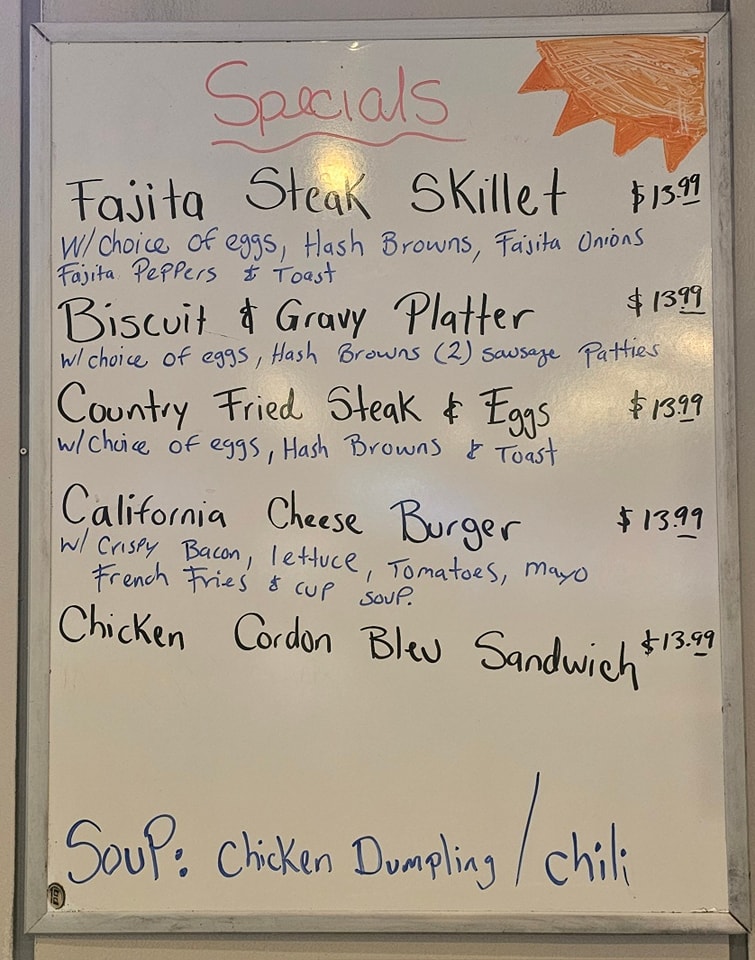 Specials
Fajita Steak Skillet $13.99
W/ choice of eggs, Hash Browns, Fajita Onions
Fajita Peppers & Toast
Biscuit & Gravy Platter $13.99
w/choice of eggs, Hash Browns (2) sausage Patties
Country Fried Steak & Eggs $13.99
w/choice of eggs, Hash Browns & Toast
California Cheese Burger $13.99
w/ Crispy Bacon, lettuce, Tomatoes, mayo
French Fries & cup soup.
Chicken Cordon Bleu Sandwich $13.99
Soup: Chicken Dumpling / chili